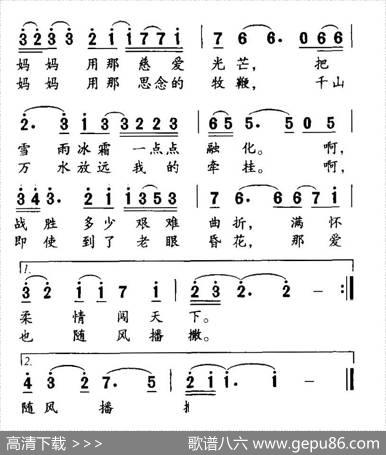 3233 2i i77i | 7 6 6. 0 66 |
妈妈 用那 慈 爱 光 芒， 把
妈妈 用那 思念的 牧 鞭， 千山
2. 3 i 3 3223 | 65 5. 5 0 5 |
雪 雨冰霜 一点点 融 化。 啊，
万 水放远 我 的 牵 挂。 啊，
343. 2i i353 | 76. 6 67i |
战胜 多少 艰难 曲折， 满怀
即使 到了 老眼 昏花， 那 爱
1.
3 2 i i 7 i | 23 2. 2 - :‖
柔 情 闯 天 下。
也 随 风 播 撒。
2.
4 3 2 7. 5 | 2i i. i -
随 风 播
高清下载 >>> 歌谱八六 www.gepu86.com